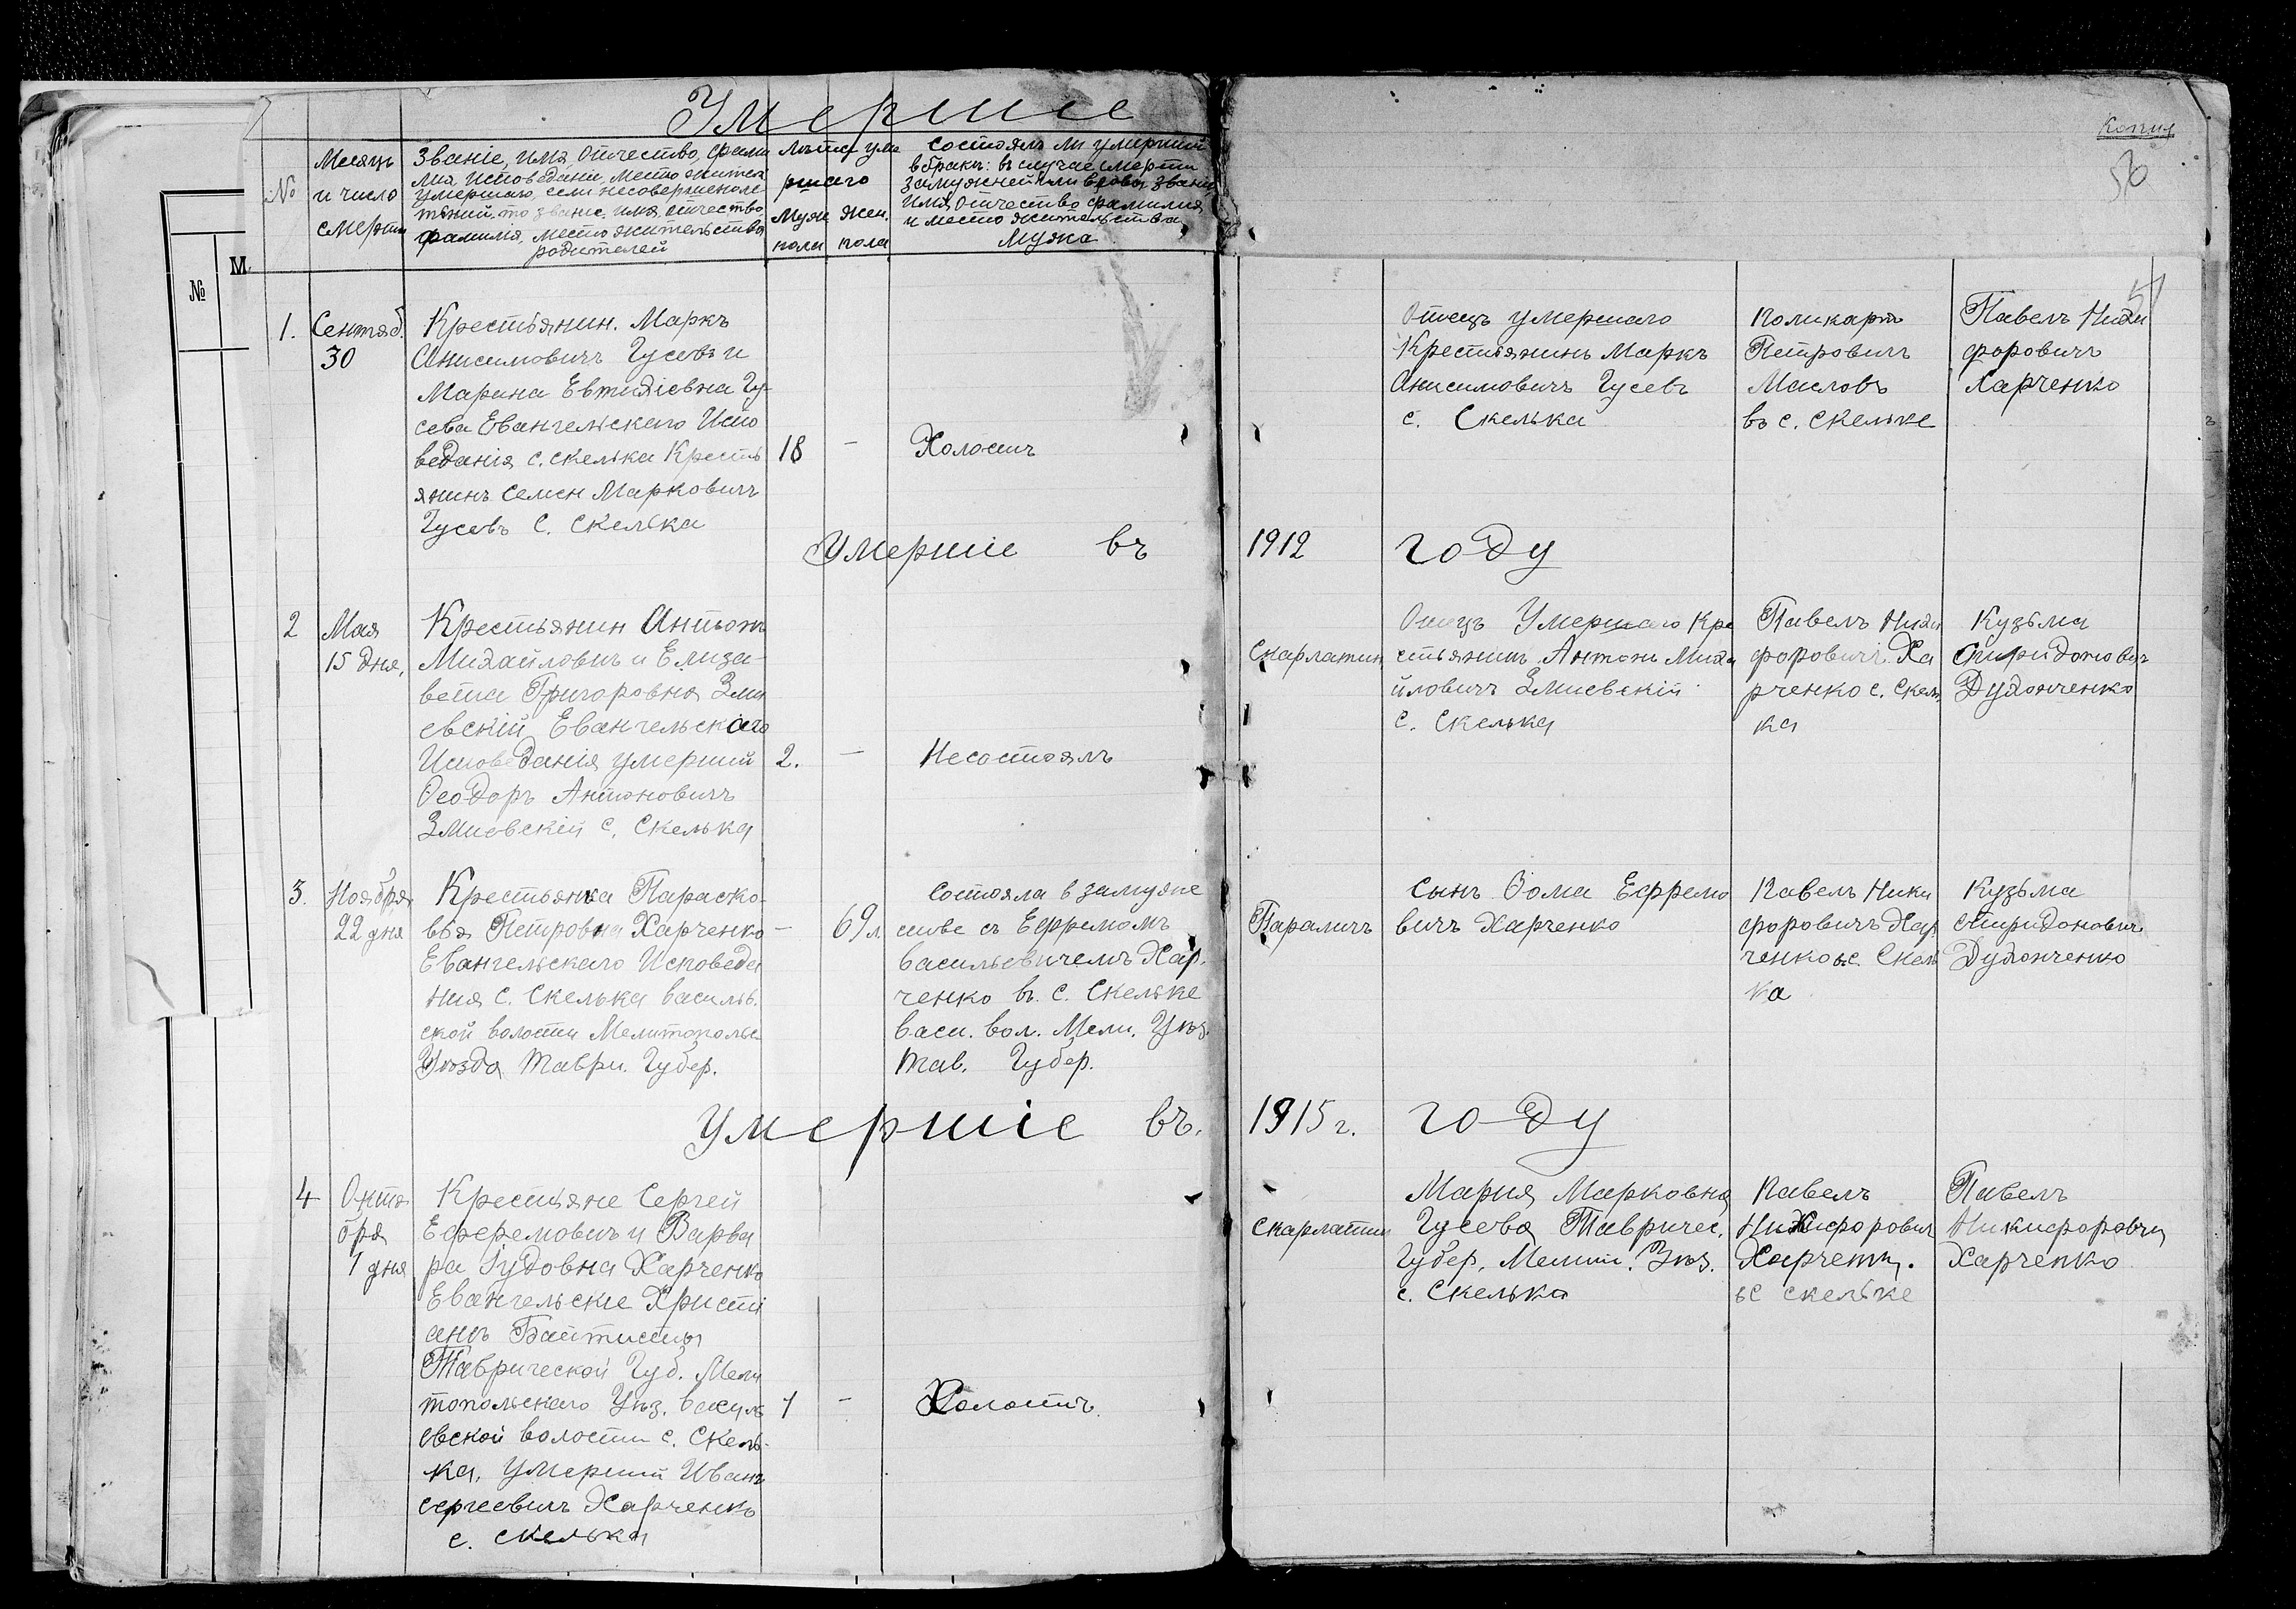 Умершiе
№
Месяцъ
и число
смерти
Званiе, имя, отчество, фами
лия исповедани, место жител
умершаго если несовершеноле
тний, то звание, имя, отчество
фамилия, место жительства
родителей
Лъта уме
ршаго
Муж
пола
жен.
пола
Состоялъ ли умерший
в бракъ: въ случае смерти
замужней или вдовы званi
имя отчество фамилия
и место жительства
Мужа
Копия
56
57
№
М
1.
Сентяб.
30
Крестьянин. Маркъ
Анисимовичъ Гусевъ и
Марина Евтихiевна Гу-
сева Евангельскаго Испо
веданiя с. Скелька Кресть
янинъ Семен Марковичъ
Гусевъ С. Скелька
18
-
Холостъ
Отецъ умершаго
Крестьянинъ Маркъ
Анисимовичъ Гусевъ
с. Скелька
Поликарпъ
Петровичъ
Масловъ
въ с. Скельке
Павелъ Ники
форовичъ
Харченко
Умершiе въ 1912 году
2
Мая
15 дня,
Крестьянин Антонъ
Михайловичъ и Елиза-
вета Григоровна Зми
евскiй Евангельскаго
Исповеданiя умерший
Ѳеодоръ Антоновичъ
Змиовскiй с. Скелька
2.
-
Несостоялъ
Скарлатин
Отецъ Умершаго Кре
стьянинъ Антонъ Миха
йловичъ Змиевскiй
с. Скелька
Павелъ Ники
форовичъ Ха
рченко с. Скель
ка
Кузьма
Спиридоновичъ
Духонченко
3.
Ноября
22 дня
Крестьянка Параско-
вья Петровна Харченко
Евангельскаго Исповеда
ния с. Скелька Васильв.
ской волости Мелитопольс
Уъзда Таври. Губер.
-
69 л
Состояла в замуже
стве съ Ефремомъ
Васильевичемъ Хар.
ченко въ. с. Скельке
Васи. вол. Мели. Уъз.
Тав. Губер.
Параличъ
Сынъ Ѳома Ефремо
вичъ Харченко
Павелъ Ники
форовичъ Хар
ченко вс. Скель
ка
Кузьма
Спиридоновичъ
Духонченко
Умершiе въ. 1915 г. году
4
Октя
бря
1 дня
Крестьяне Сергей
Ефремовичъ и Варва
ра Iудовна Харченко
Евангельские Христi
анъ Баптисты
Таврической Губ. Мели
топольскаго Уъз. Василь
евской волости с. Скель-
ка, Умерший Иванъ
Сергеевичъ Харченко
с. Скелька
1
-
Холостъ
Скарлатин
Мария Марковна
Гусева Тавричес.
Губер. Мелит. Уъз.
с. Скелька
Павелъ
Никифорович
Харченко.
вс Скельке
Павелъ
Никифоровичъ
Харченко